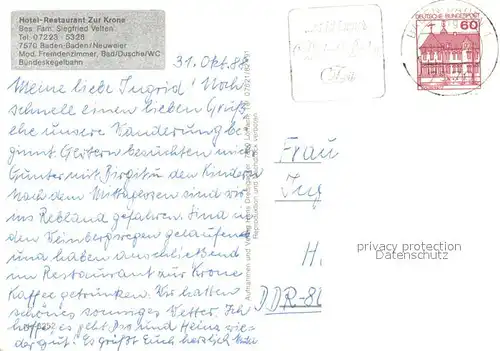 Hotel-Restaurant Zur Krone
Bes. Fam. Siegfried Velten
Tel. 07223 - 5328
7570 Baden-Baden/Neuweier
Mod. Fremdenzimmer, Bad/Dusche/WC
Bundeskegelbahn
31. Okt. 88
Meine liebe Ingrid! Noch
schnell einen lieben Gruß,
ehe unsere Wanderung be
ginnt. Gestern besuchten mich
Günter mit Birgit u den Kindern
Nach dem Mittagessen sind wir
ins Rebland gefahren. Sind in
den Weinbergwegen gelaufen
und haben anschließend
im Restaurant zur Krone
Kaffee getrunken. Wir hatten
schönes sonniges Wetter. Ich
hoffe, es geht Dir und Heinz wie-
der gut! Es grüßt Euch herzlich
Aufnahmen und Verlag
Reproduktion und Nachdruck verboten
DEUTSCHE BUNDESPOST
60
Frau
Ing
H.
DDR-8
privacy protection
Datenschutz